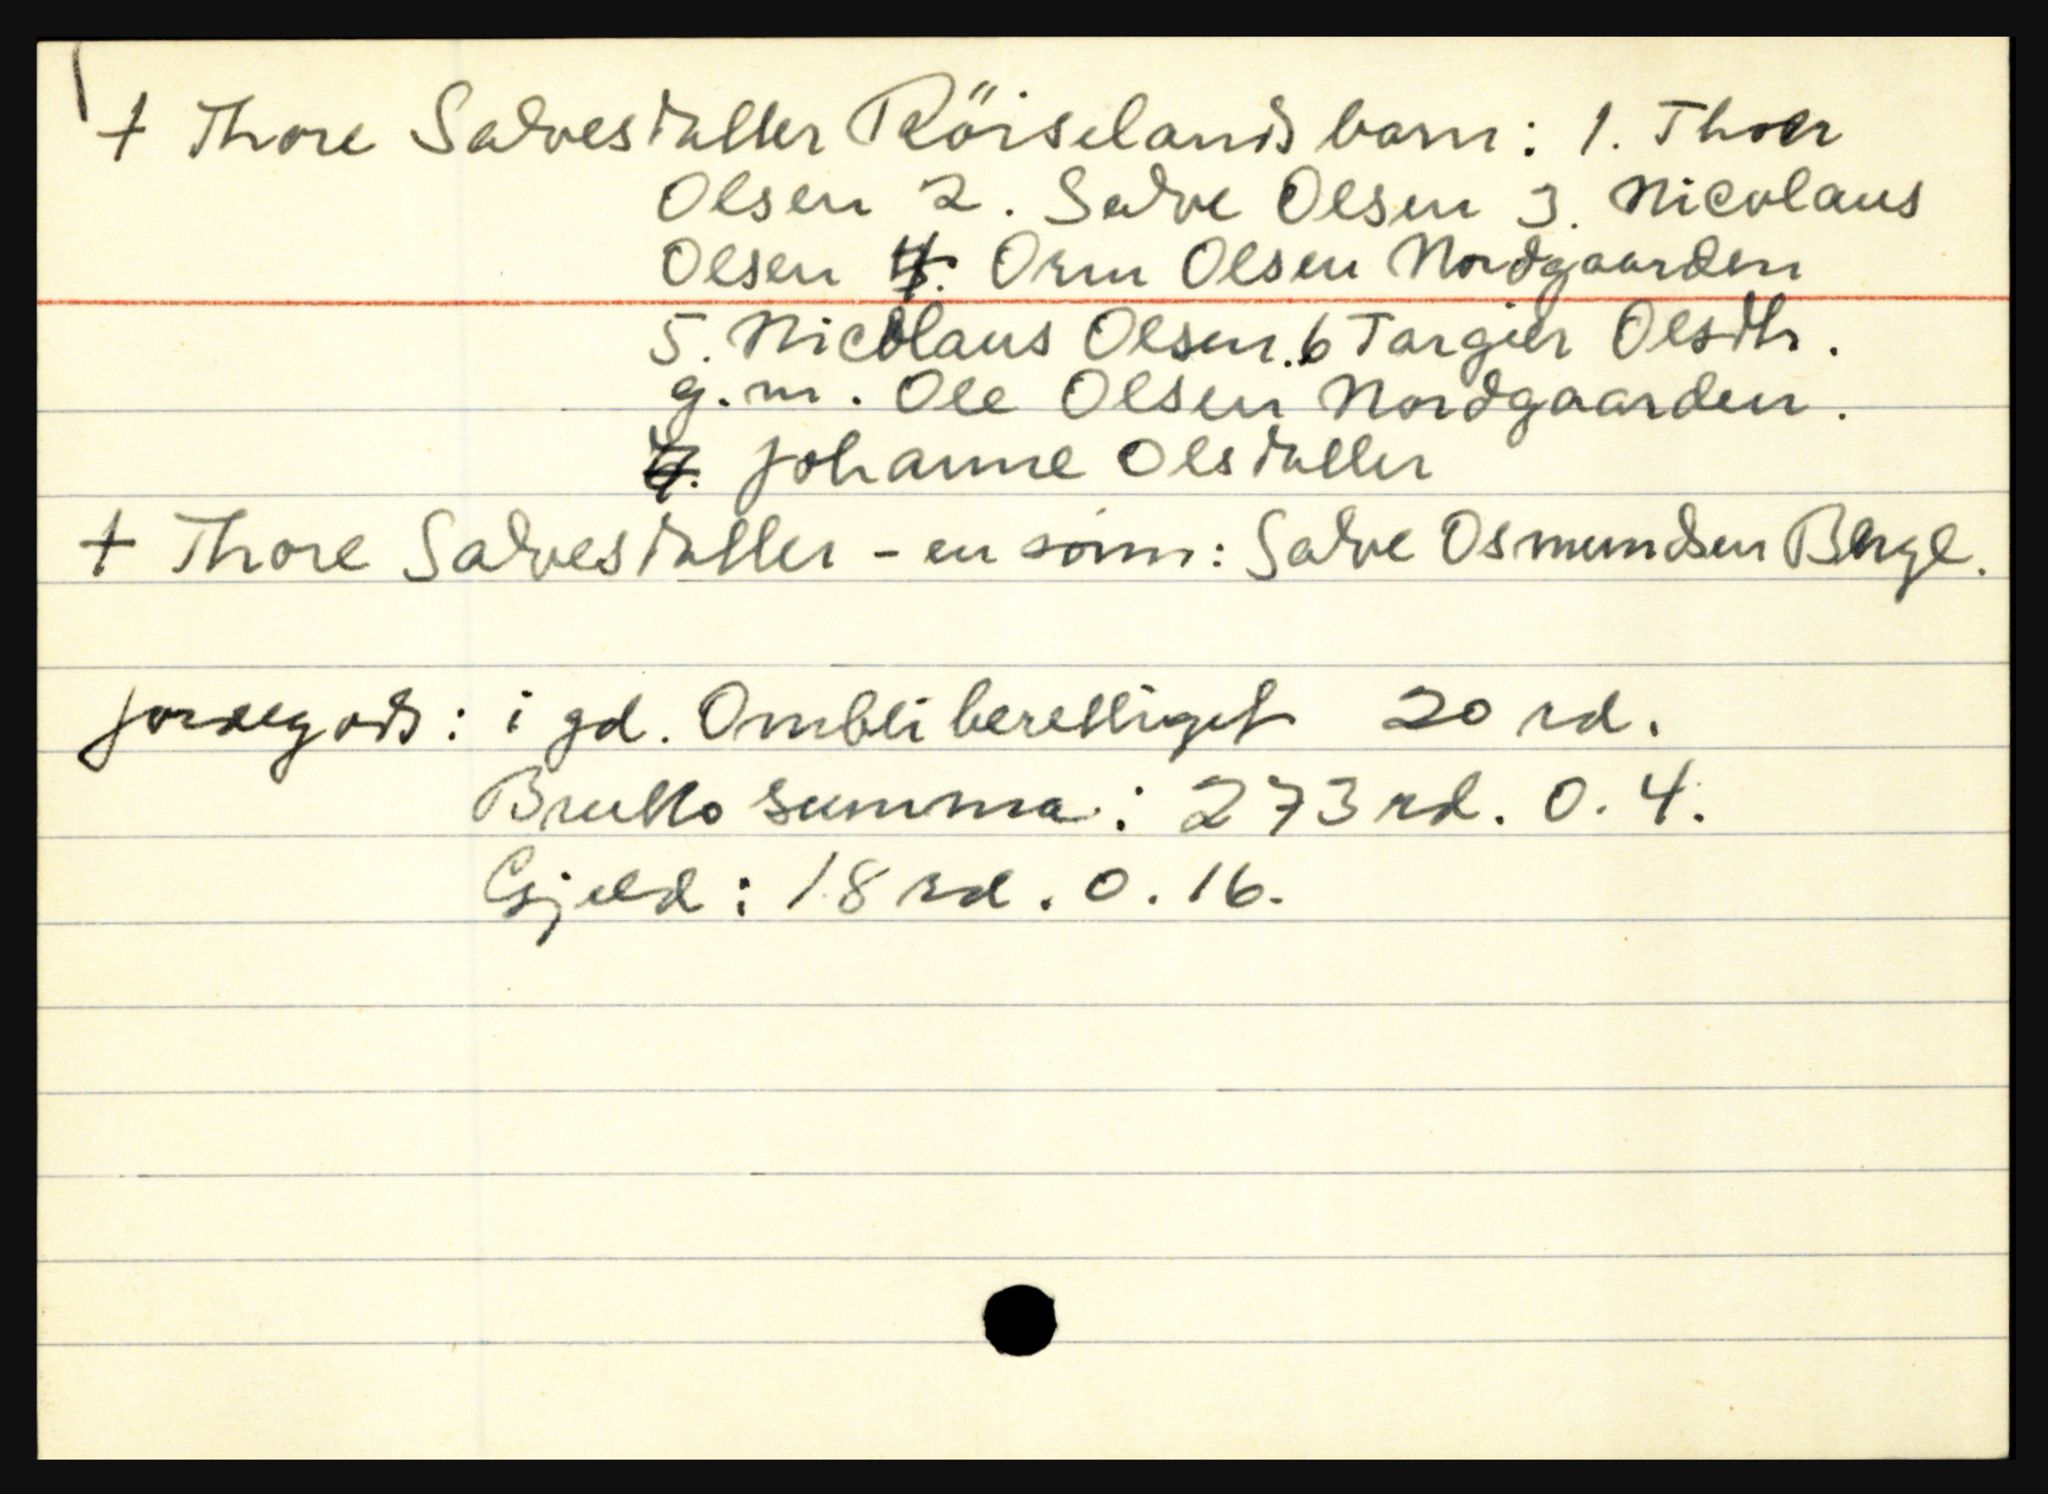 + Thore Salvesdatter Röiselands barn: 1. Thoer
Olsen 2. Salve Olsen 3. Nicolaus
Olsen 4. Orm Olsen Nordgaarden
5. Nicolaus Olsen. 6 Targier Olsdtr.
g. m. Ole Olsen Nordgaarden.
7. Johanne Olsdatter
+ Thore Salvesdatter - en sönn: Salve Osmundsen Berge.
Jordegods: i gd. Ombli berettiget 20 rd.
Brutto summa: 273 rd. 0. 4.
Gjeld: 18 rd. 0. 16.